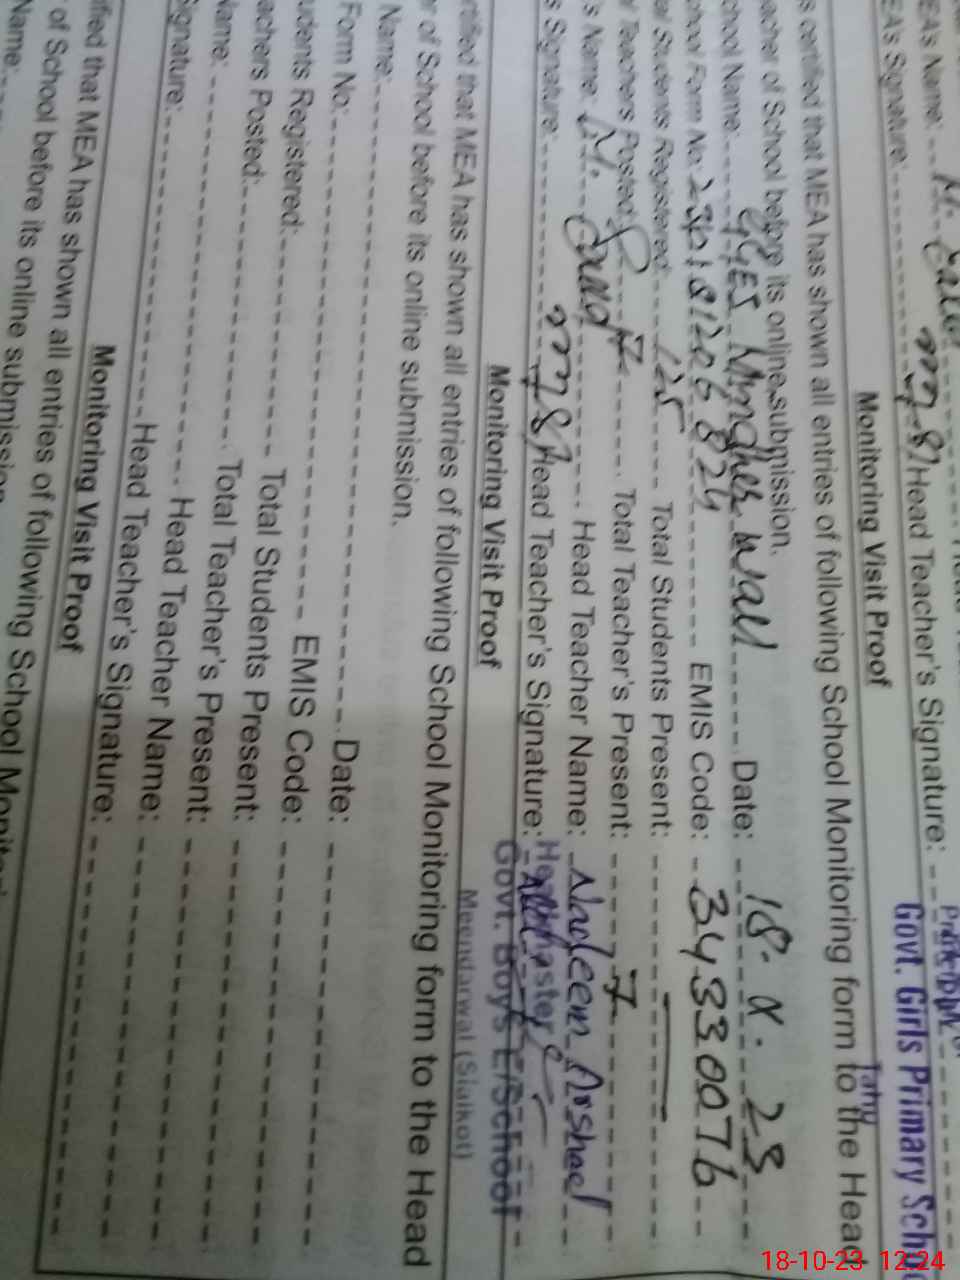 EA's Name:
EA's Signature: Head Teacher's Signature:
Govt. Girls Primary Scho
Monitoring Visit Proof
s certified that MEA has shown all entries of following School Monitoring form to the Head
acher of School before its online submission.
chool Name: Date: 18. X. 23
chool Form No: EMIS Code: 34330076
al Students Registered: 125 Total Students Present:
al Teachers Posted: 7 Total Teacher's Present: 7
's Name: Head Teacher Name: Nadeem Arshad
s Signature: Head Teacher's Signature:
Headmaster
Govt. Boys E/School
Meendarwal (Sialkot)
Monitoring Visit Proof
rtified that MEA has shown all entries of following School Monitoring form to the Head
r of School before its online submission.
Name: Date:
Form No: EMIS Code:
udents Registered: Total Students Present:
achers Posted: Total Teacher's Present:
Name: Head Teacher Name:
Signature: Head Teacher's Signature:
Monitoring Visit Proof
ified that MEA has shown all entries of following School
of School before its online submission
Name:
18-10-23 12:24